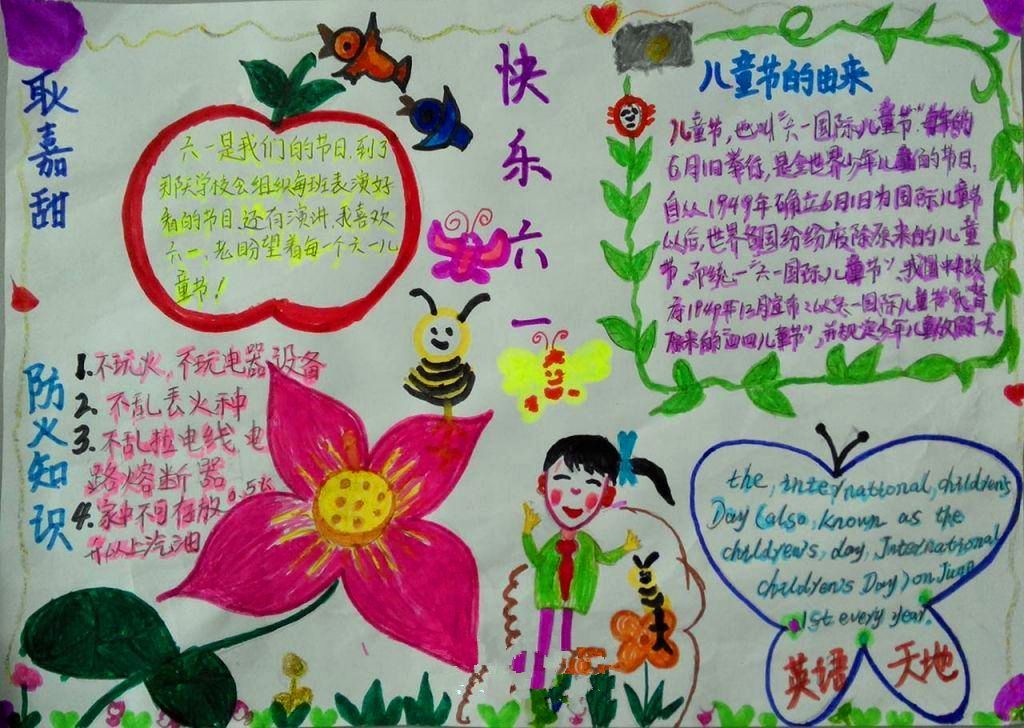 耿嘉甜
快乐六一
六一是我们的节日.到了
那天学校会组织每班表演好
看的节目.还有演讲.我喜欢
六一.老盼望着每一个六一儿
童节!
儿童节的由来
儿童节,也叫“六一国际儿童节”每年的
6月1日举行,是全世界少年儿童们的节日,
自从1949年确立6月1日为国际儿童节
以后,世界各国纷纷废除原来的儿童
节,而统一“六一国际儿童节”,我国中央政
府1949年12月宣布:以六一国际儿童节代替
原来的“四四儿童节”,并规定今年儿童放假一天。
防火知识
1.不玩火,不玩电器设备
2.不乱丢火种
3.不乱拉电线电
路熔断器
4.家中不可存放0.5长
升以上汽油
the, international, children's
Day (also, known as the
children's, day, International
children's Day) on June
1st every year.
英语天地